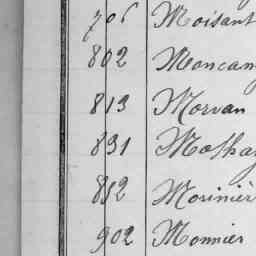 706 Moisant
802 Moncan
813 Morvan
831
852 Morinièr
902 Monnier